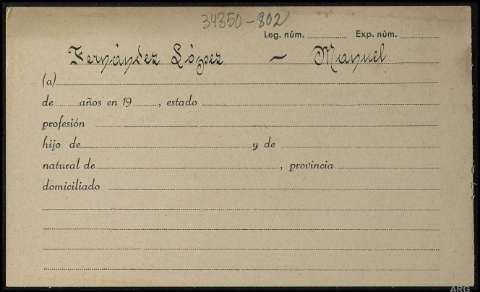 34350-802
Leg. núm. Exp. núm.
Fernández López — Manuel
(a)
de años en 19 , estado
profesión
hijo de y de
natural de , provincia
domiciliado
ARG